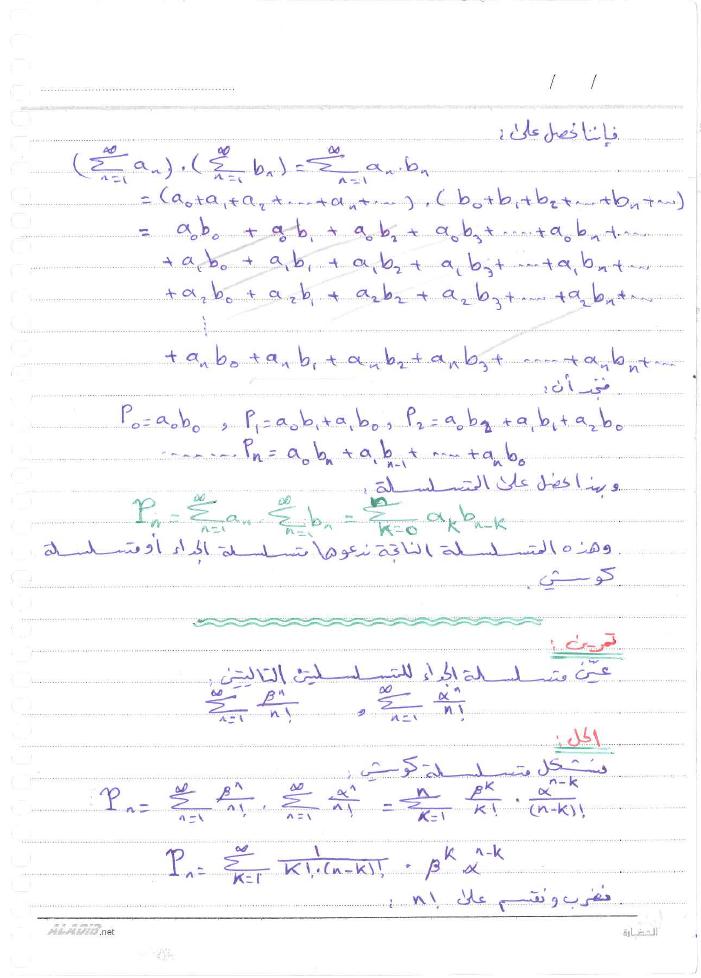 / /
فإننا نحصل على:
(∑_{n=1}^{∞} a_n) . (∑_{n=1}^{∞} b_n) = ∑_{n=1}^{∞} a_n . b_n
= (a_0+a_1+a_2+.....+a_n+....) . (b_0+b_1+b_2+....+b_n+....)
= a_0b_0 + a_0b_1 + a_0b_2 + a_0b_3+.....+a_0b_n+.....
+ a_1b_0 + a_1b_1 + a_1b_2 + a_1b_3+.....+a_1b_n+....
+ a_2b_0 + a_2b_1 + a_2b_2 + a_2b_3+.....+a_2b_n+....
⋮
+ a_nb_0 + a_nb_1 + a_nb_2 + a_nb_3+ ......+a_nb_n+....
فنجد أن:
P_0=a_0b_0 , P_1=a_0b_1+a_1b_0, P_2=a_0b_2+a_1b_1+a_2b_0
........P_n=a_0b_n+a_1b_{n-1}+.....+a_nb_0
وبهذا نحصل على المتسلسلة:
P_n = ∑_{n=1}^{∞} a_n . ∑_{n=1}^{∞} b_n = ∑_{K=0}^{n} a_K b_{n-K}
وهذه المتسلسلة الناتجة ندعوها متسلسلة الجداء أو متسلسلة
كوشي.
تمرين:
عيّن متسلسلة الجداء للمتسلسلتين التاليتين:
∑_{n=1}^{∞} β^n/n! , ∑_{n=1}^{∞} α^n/n!
الحل:
فنشكل متسلسلة كوشي:
P_n = ∑_{n=1}^{∞} β^n/n! . ∑_{n=1}^{∞} α^n/n! = ∑_{K=1}^{n} β^K/K! . α^{n-K}/(n-K)!
P_n = ∑_{K=1}^{∞} 1/(K!.(n-K)!) . β^K α^{n-K}
فنضرب ونقسم على n! :
ALADIB.net